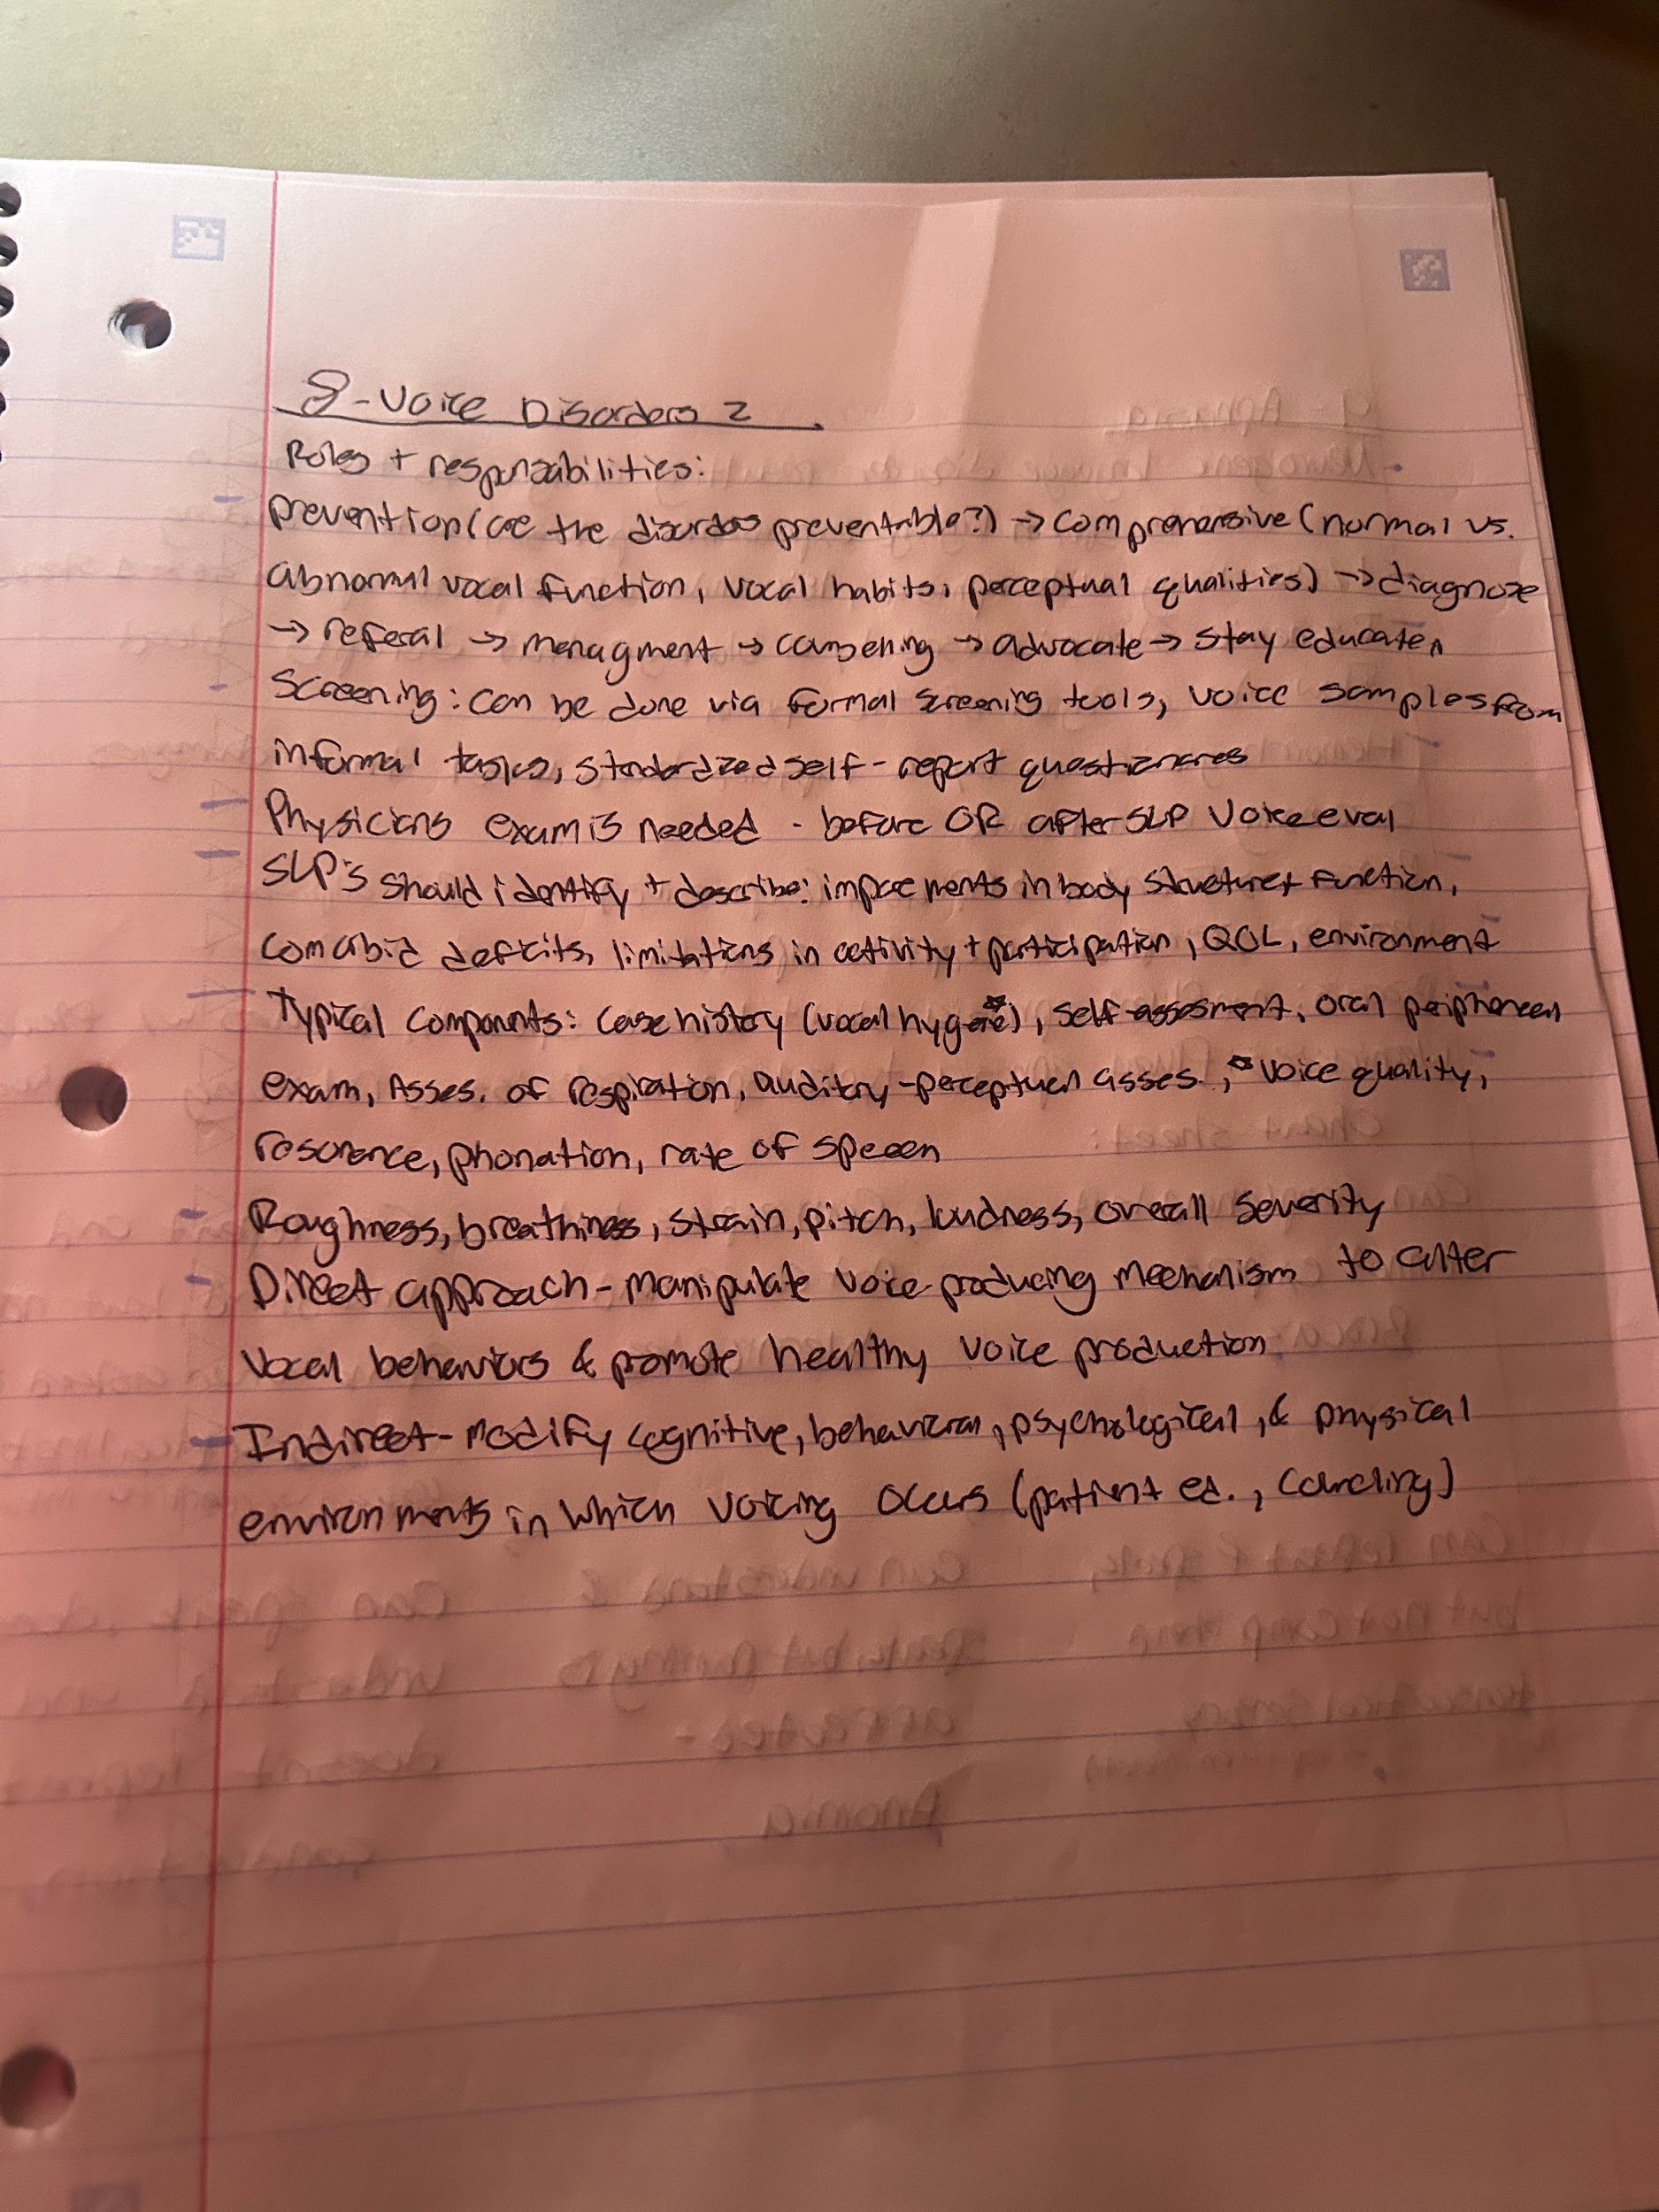 8-Voice Disorders 2
Roles + responsabilities:
- prevention (are the disorders preventable?) → comprehensive (normal vs.
abnormal vocal function, vocal habits, perceptual qualities) → diagnose
→ referal → managment → counseling → advocate → stay educated
- Screening: can be done via formal screening tools, voice samples from
informal tasks, standardized self-report questionares
- Physicians exam is needed - before OR after SLP voice eval
- SLP's should identify + describe: impairments in body structure + function,
comorbid deficits, limitations in activity + participation, QOL, environment
- Typical components: case history (vocal hygene☆), self-assesment, oral peripheral
exam, Asses. of respiration, auditory-perceptual asses., ☆voice quality,
resonance, phonation, rate of speech
- Roughness, breathiness, strain, pitch, loudness, overall severity
- Direct approach - manipulate voice producing mechanism to alter
vocal behaviors & promote healthy voice production
- Indirect - modify cognitive, behavioral, psychological, & physical
environments in which voicing occurs (patient ed., counseling)